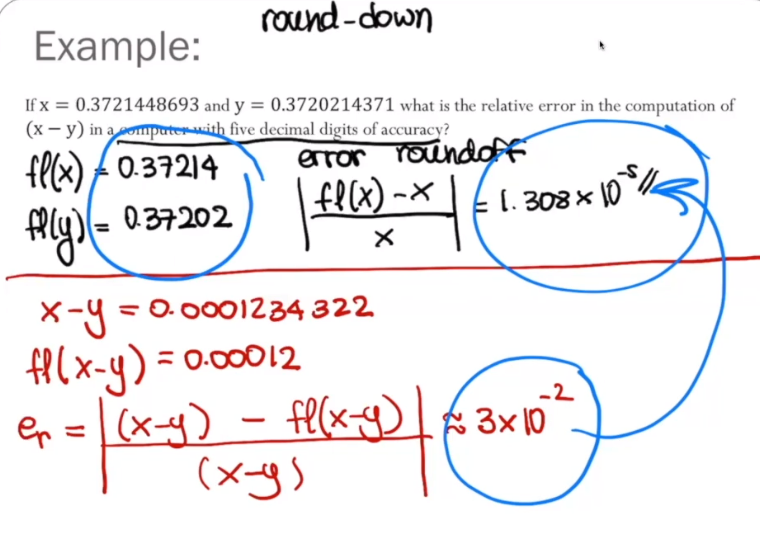 round-down
Example:
If x = 0.3721448693 and y = 0.3720214371 what is the relative error in the computation of
(x − y) in a computer with five decimal digits of accuracy?
fl(x) = 0.37214
fl(y) = 0.37202
error roundoff
| fl(x) - x / x | = 1.308 × 10^-5 //
x-y = 0.0001234322
fl(x-y) = 0.00012
er = | (x-y) - fl(x-y) / (x-y) | ≈ 3×10^-2